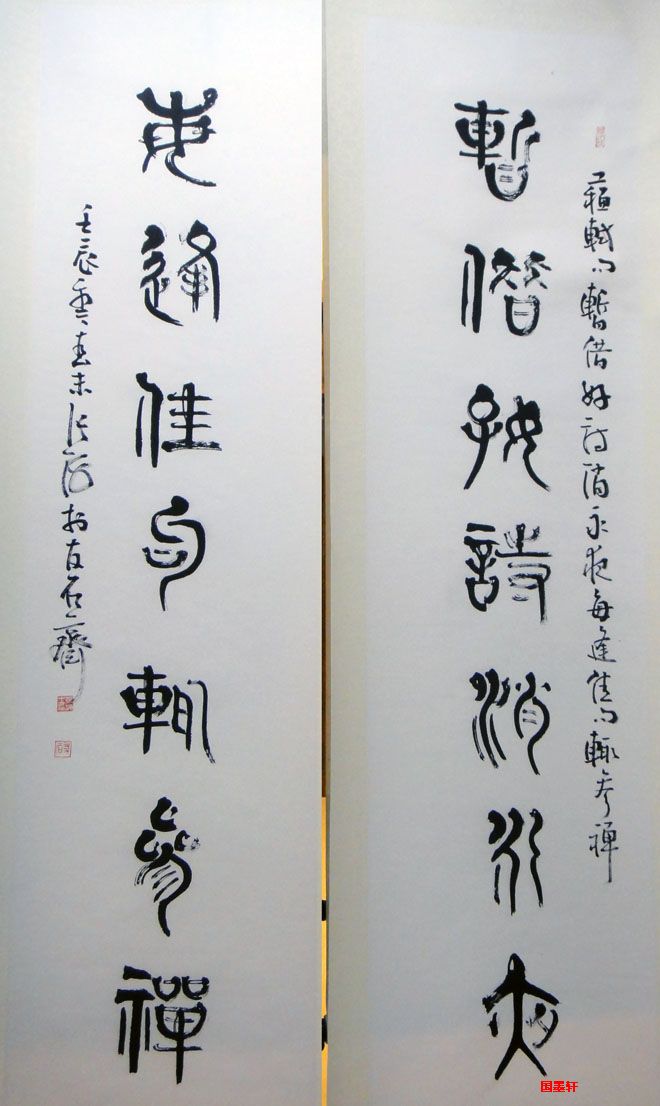 蘇軾句暫借好詩消永夜每逢佳句輒參禪
暫借好詩消永夜
每逢佳句輒參禪
壬辰春末於友石齋
国墨轩